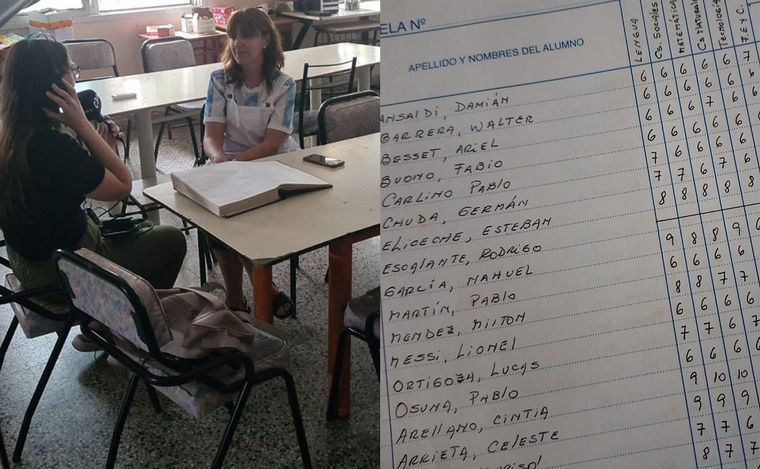 ELA Nº
APELLIDO Y NOMBRES DEL ALUMNO
LENGUA
CS. SOCIALES
MATEMÁTICA
CS NATURALES
TECNOLOGÍA
F. E Y C.
ANSALDI, DAMIÁN 6 6 6 6 6 7
BARRERA, WALTER 6 6 6 7 6 6
BESSET, ARIEL 6 6 6 6 6
BUONO, FABIO 6 6 6 6 6
CARLINO PABLO 7 6 6 6 6
CHUDA, GERMÁN 7 7 6 7 6
ELICECHE, ESTEBAN 8 8 8 8 8
ESCALANTE, RODRIGO 9 8 8 9 6
GARCÍA, NAHUEL 6 6 6 6
MARTÍN, PABLO 8 8 7 7
MENDEZ, MILTON 6 6 6 6
MESSI, LIONEL 7 7 6 7
ORTIGOZA, LUCAS 6 6 6 6
OSUNA, PABLO 9 10 10
ARELLANO, CINTIA 9 9 9
ARRIETA, CELESTE 7 7 6